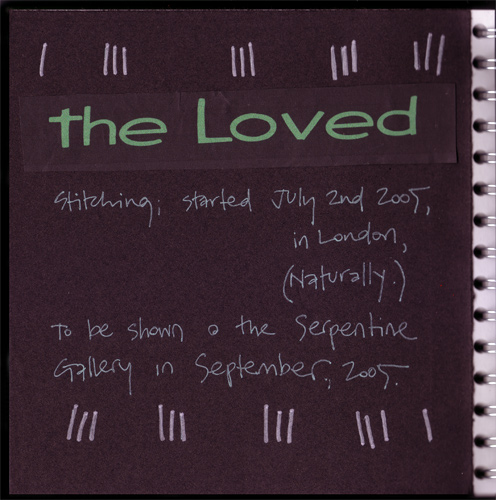 the Loved
Stitching; started July 2nd 2005,
in London,
(Naturally.)
To be shown @ the Serpentine
Gallery in September, 2005.